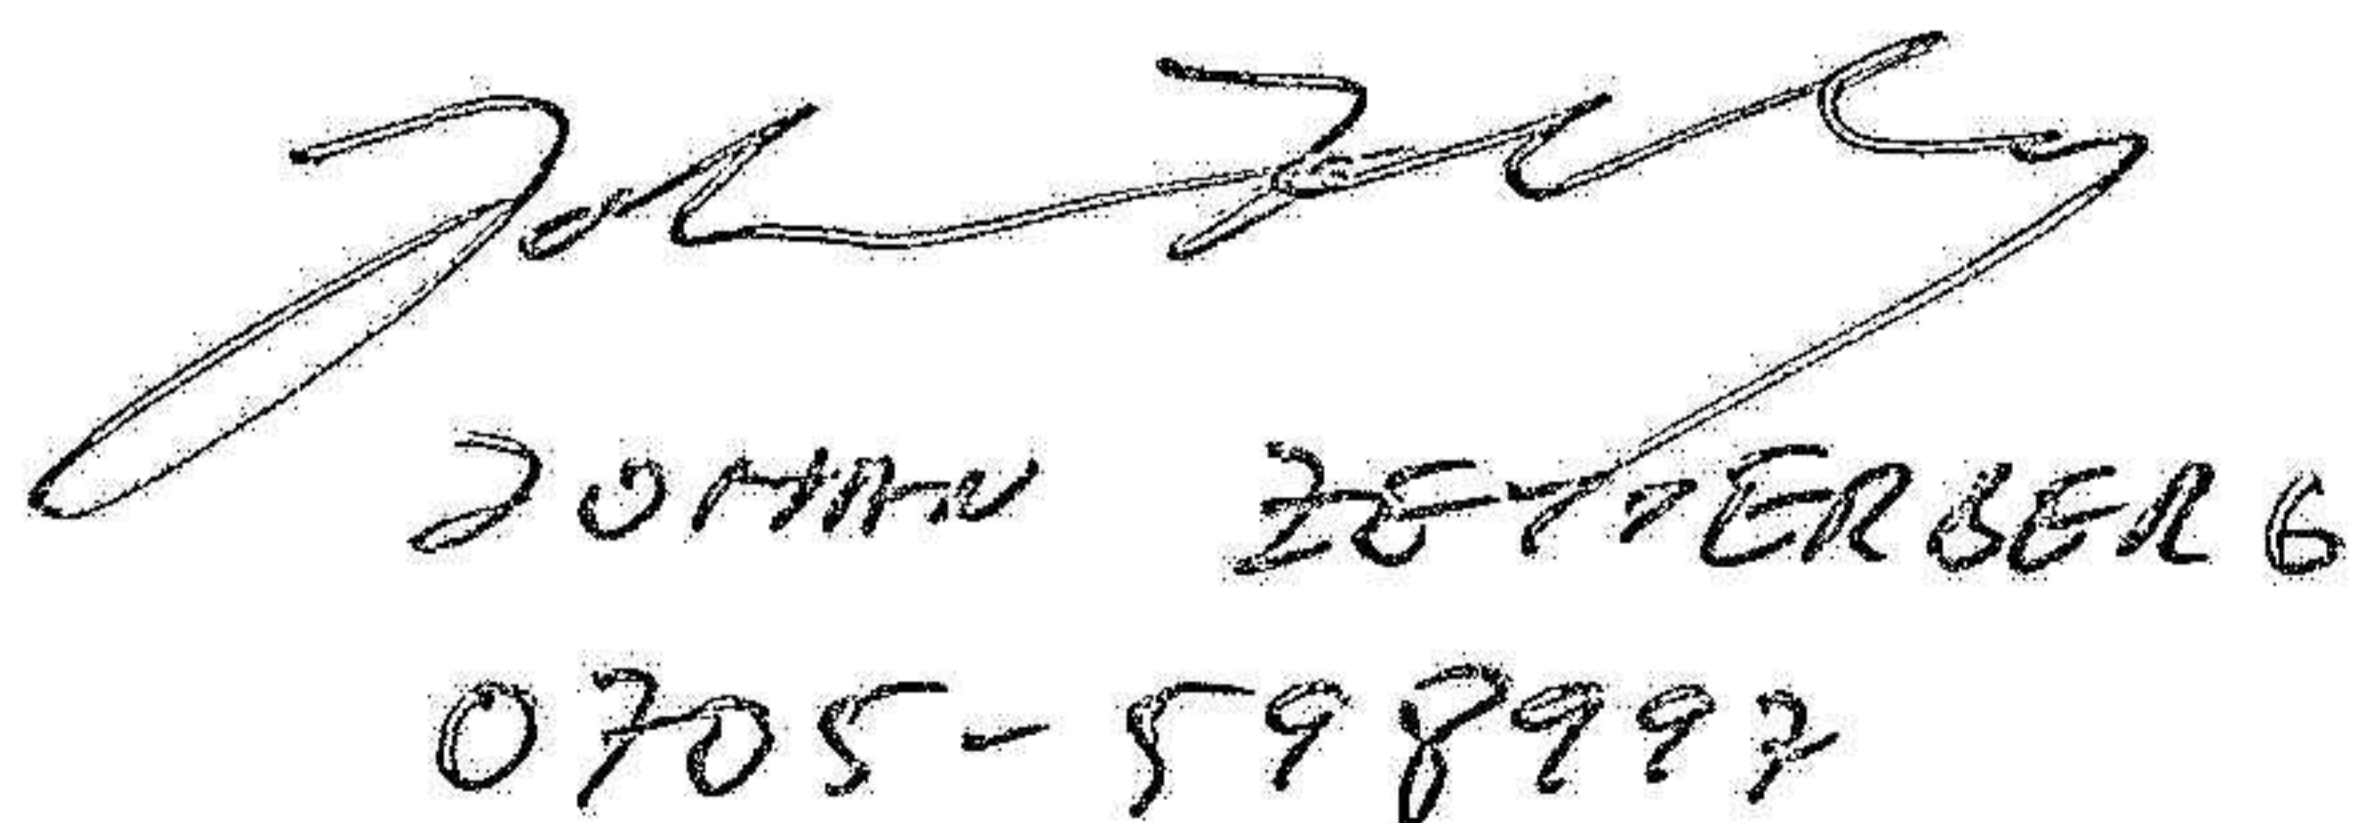 JOHAN ZETTERBERG
0705-598997